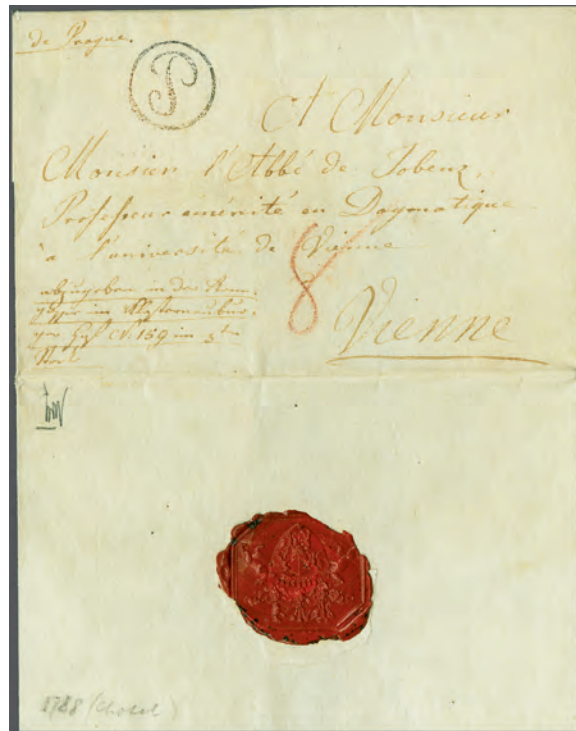 de Prague.
P
A Monsieur
Monsieur l'Abbé de Jobenz,
Professeur émérité en Dogmatique
à l'université de Vienne
abzugeben in der
im
N. 159 im 3ten
8
Vienne
1788 (Chotek)